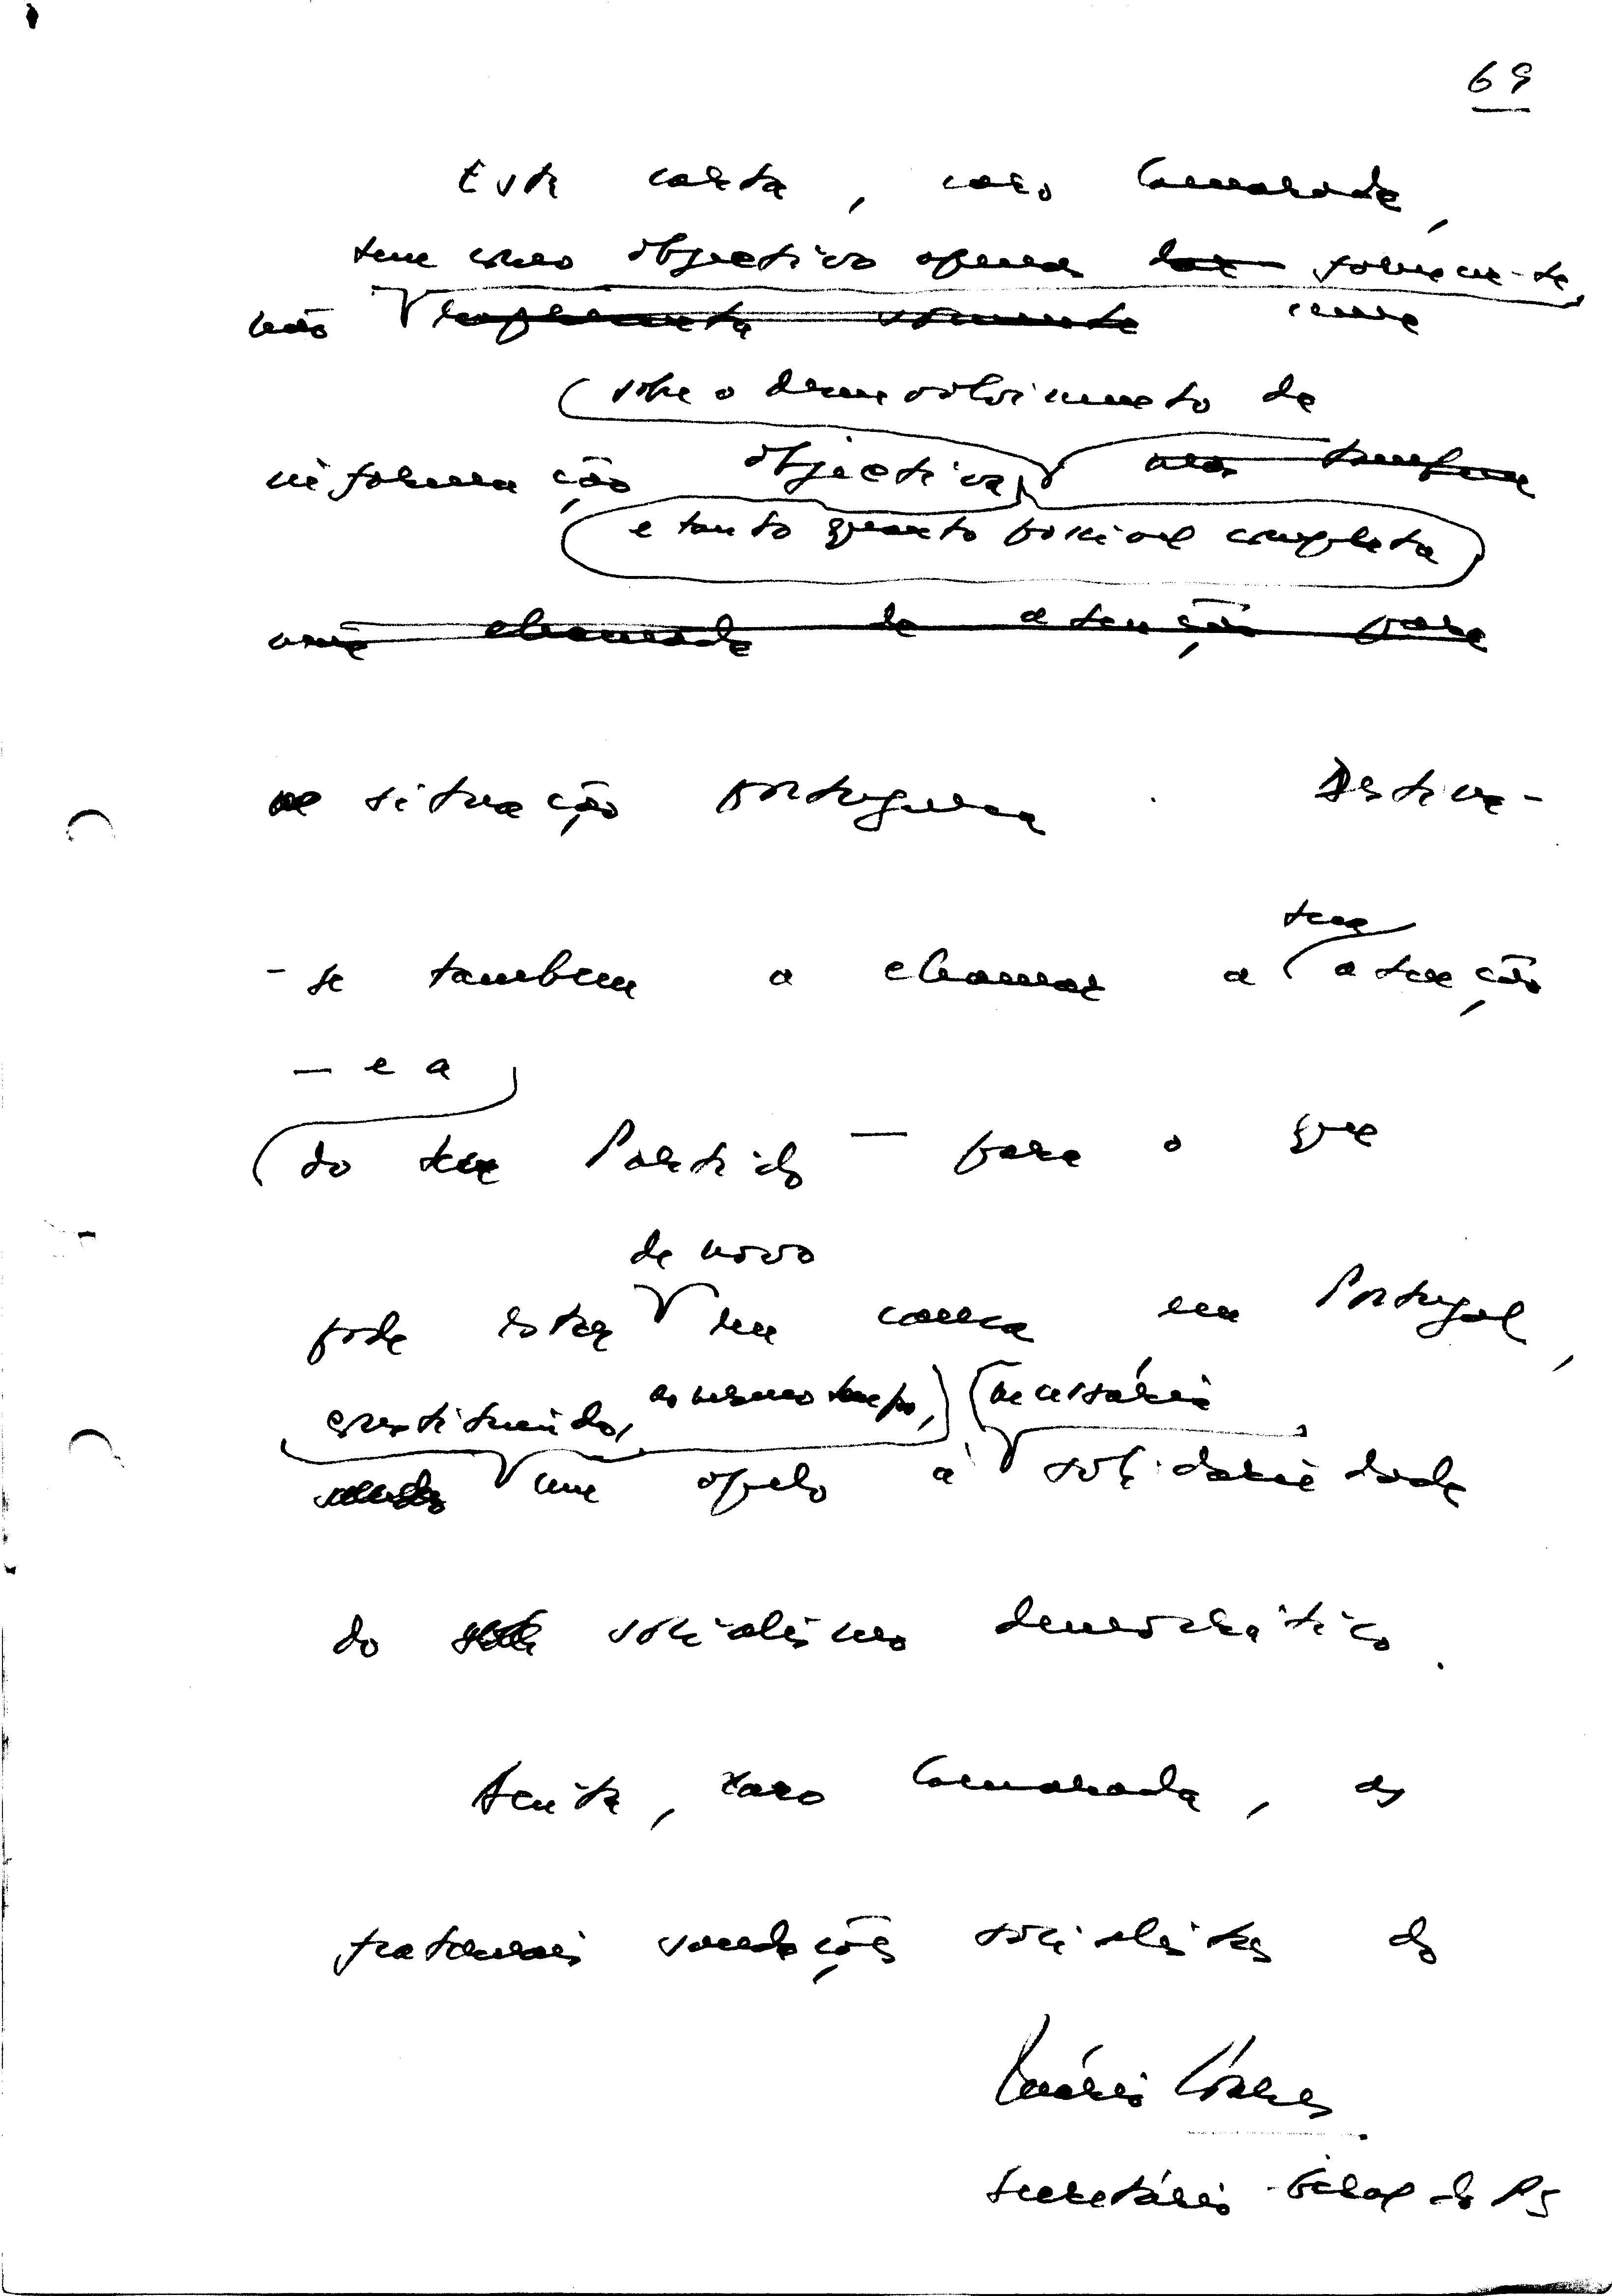 69
Esta carta, caro Camarada,
tem como objectivo apenas dar fornecer-te
não representa somente uma
sobre o desenvolvimento da
informação objectiva mas também
e tanto quanto possível completa
uma chamada de atenção para
a situação portuguesa. Destina-
-se também a chamar a tua atenção
— e a
do teu Partido — para o que
de novo
pode estar em causa em Portugal,
constituindo, ao mesmo tempo, necessária
um apelo à solidariedade
do socialismo democrático.
Aceita, caro Camarada, as
fraternais saudações socialistas do
Mário Soares
Secretário-Geral do PS